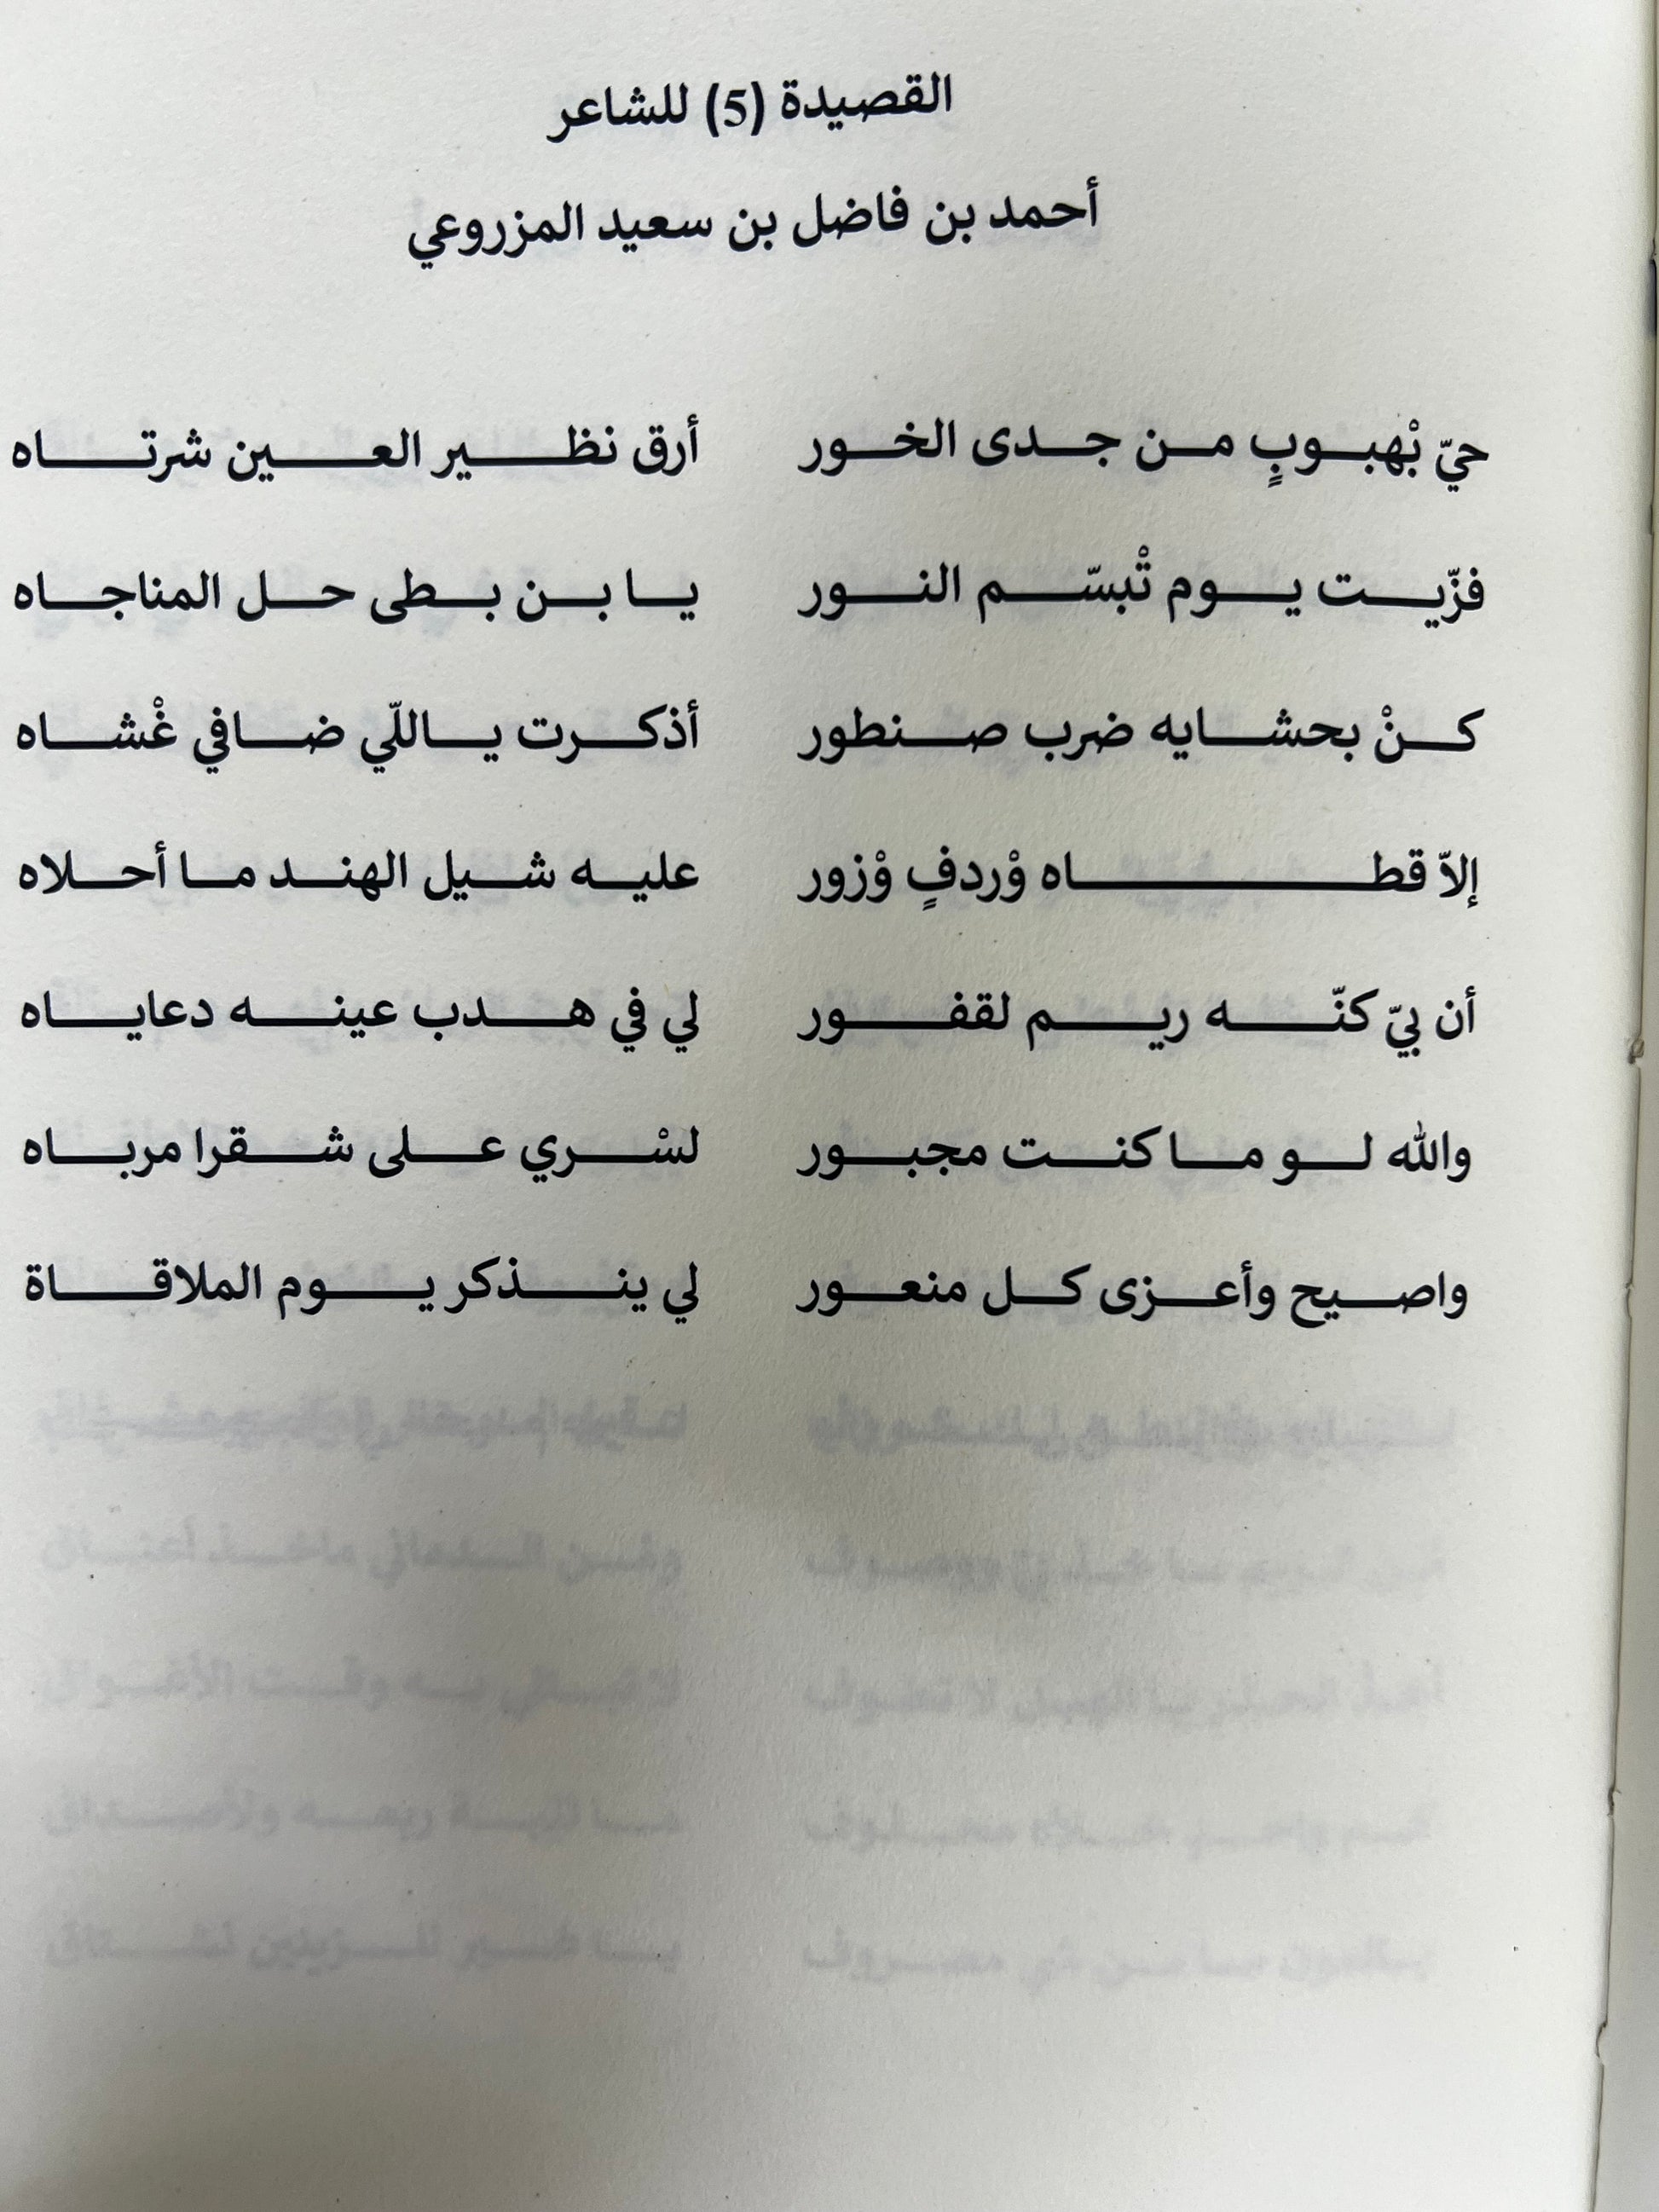 القصيدة (5) للشاعر
أحمد بن فاضل بن سعيد المزروعي
حيّ بْهبوبٍ من جدى الخور أرق نظير العين شرتاه
فزّيت يوم تْبسّم النور يا بن بطى حل المناجاه
كنْ بحشايه ضرب صنطور أذكرت ياللّي ضافي غْشاه
إلاّ قطاه وْردفٍ وْزور عليه شيل الهند ما أحلاه
أن بيّ كنّه ريم لقفور لي في هدب عينه دعاياه
والله لو ما كنت مجبور لسْري على شقرا مرباه
واصيح وأعزى كل منعور لي ينذكر يوم الملاقاة